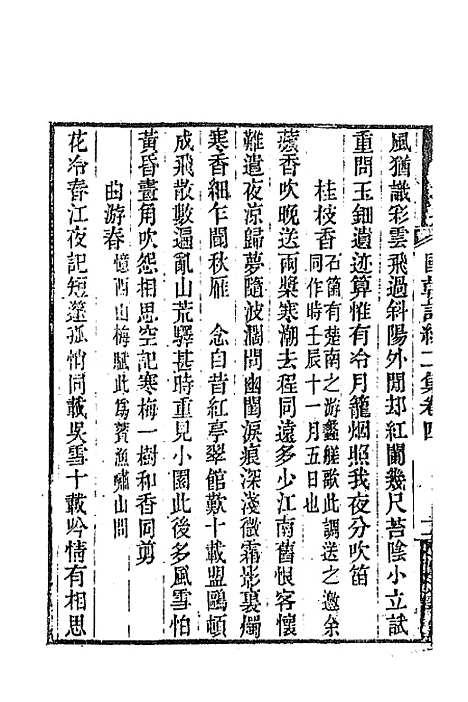 風猶識彩雲飛過斜陽外閒却紅闌幾尺苔陰小立試
重問玉鈿遺迹算惟有冷月籠烟照我夜分吹笛
桂枝香
石筍有楚南之游鷖艖歌此調送之邀余
同作時壬辰十一月五日也
蘋香吹晚送兩槳寒潮去程同遠多少江南舊恨客懷
難遺夜涼歸夢隨波濶問幽閨淚痕深淺微霜影裏燭
寒香細乍聞秋雁 念自昔紅亭翠館歎十載盟鷗頓
成飛散數遍亂山荒驛甚時重見小園此後多風雪怕
黃昏畫角吹怨相思空記寒梅一樹和香同剪
曲游春
憶西山梅賦此爲贊漁嘯山問
花冷春江夜記短篷孤怕同載吳雪十載吟情有相思
國朝詞綜二集卷四